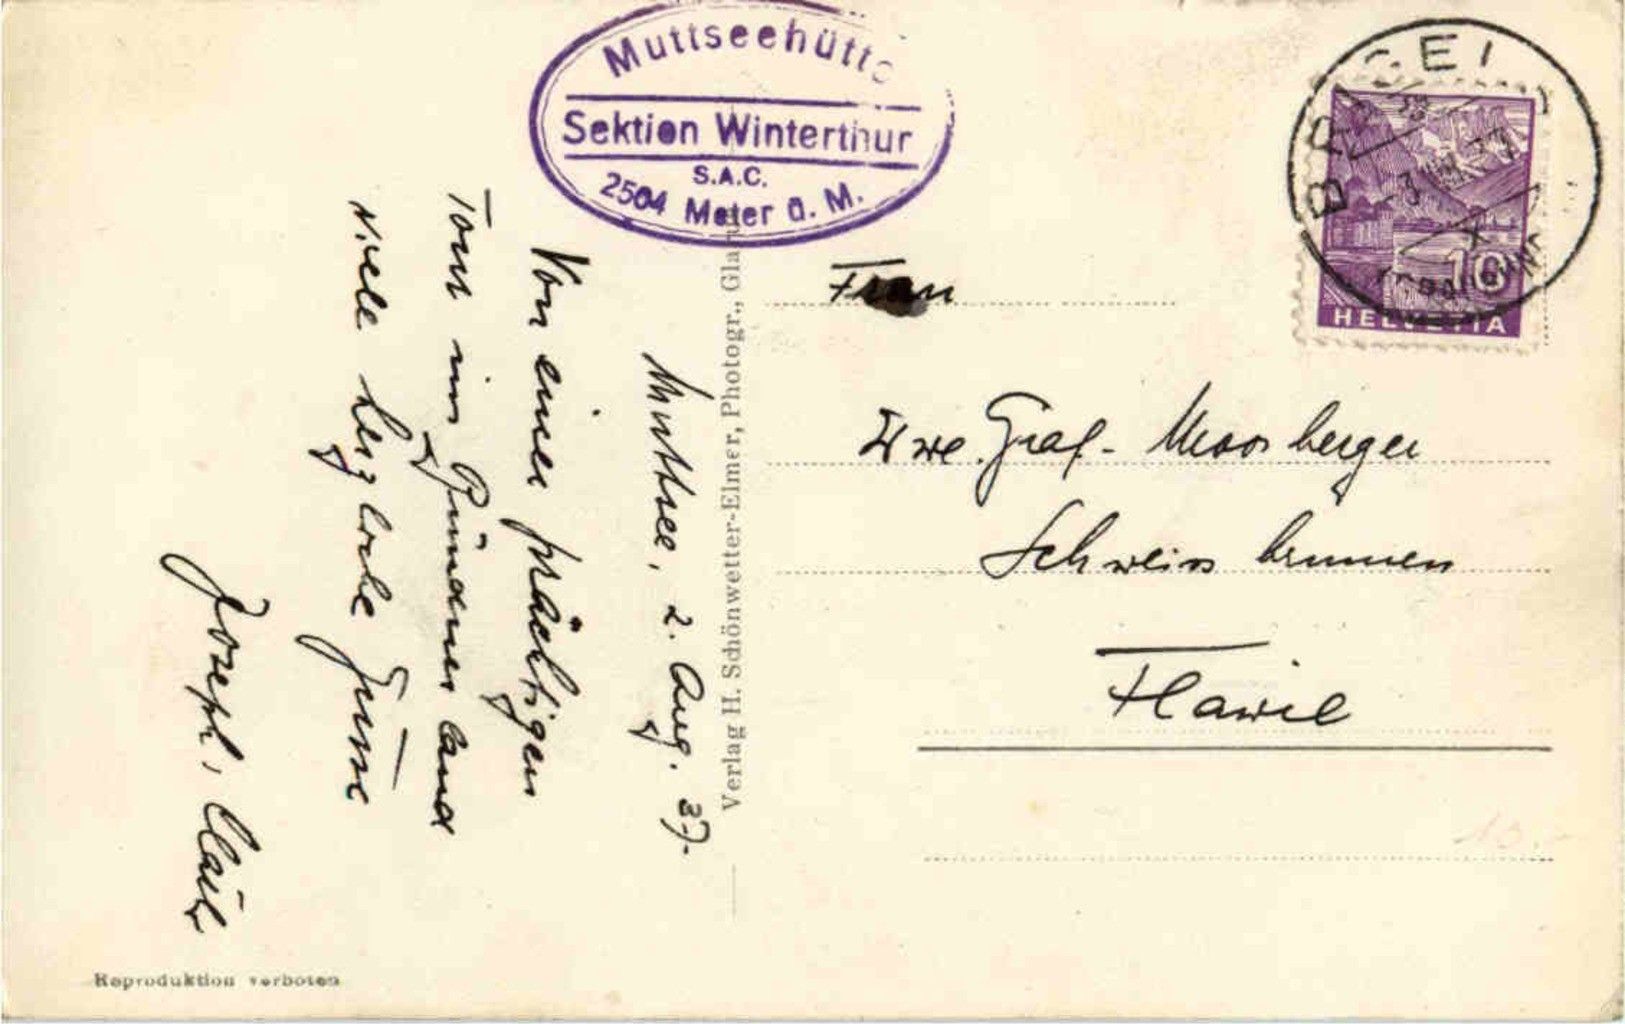 Muttseehütte
Sektion Winterthur
S.A.C.
2504 Meter ü. M.
BRIGEL
3. VIII. 37
HELVETIA
10
Muttsee, 2. Aug. 37.
Von einer prächtigen
Tour ins Bündnerland
viele herzliche Grüsse
Joseph,
Verlag H. Schönwetter-Elmer, Photogr., Glarus
Frau
Wwe. Graf-Moosberger
Schweissbrunnen
Flawil
10.-
Reproduktion verboten